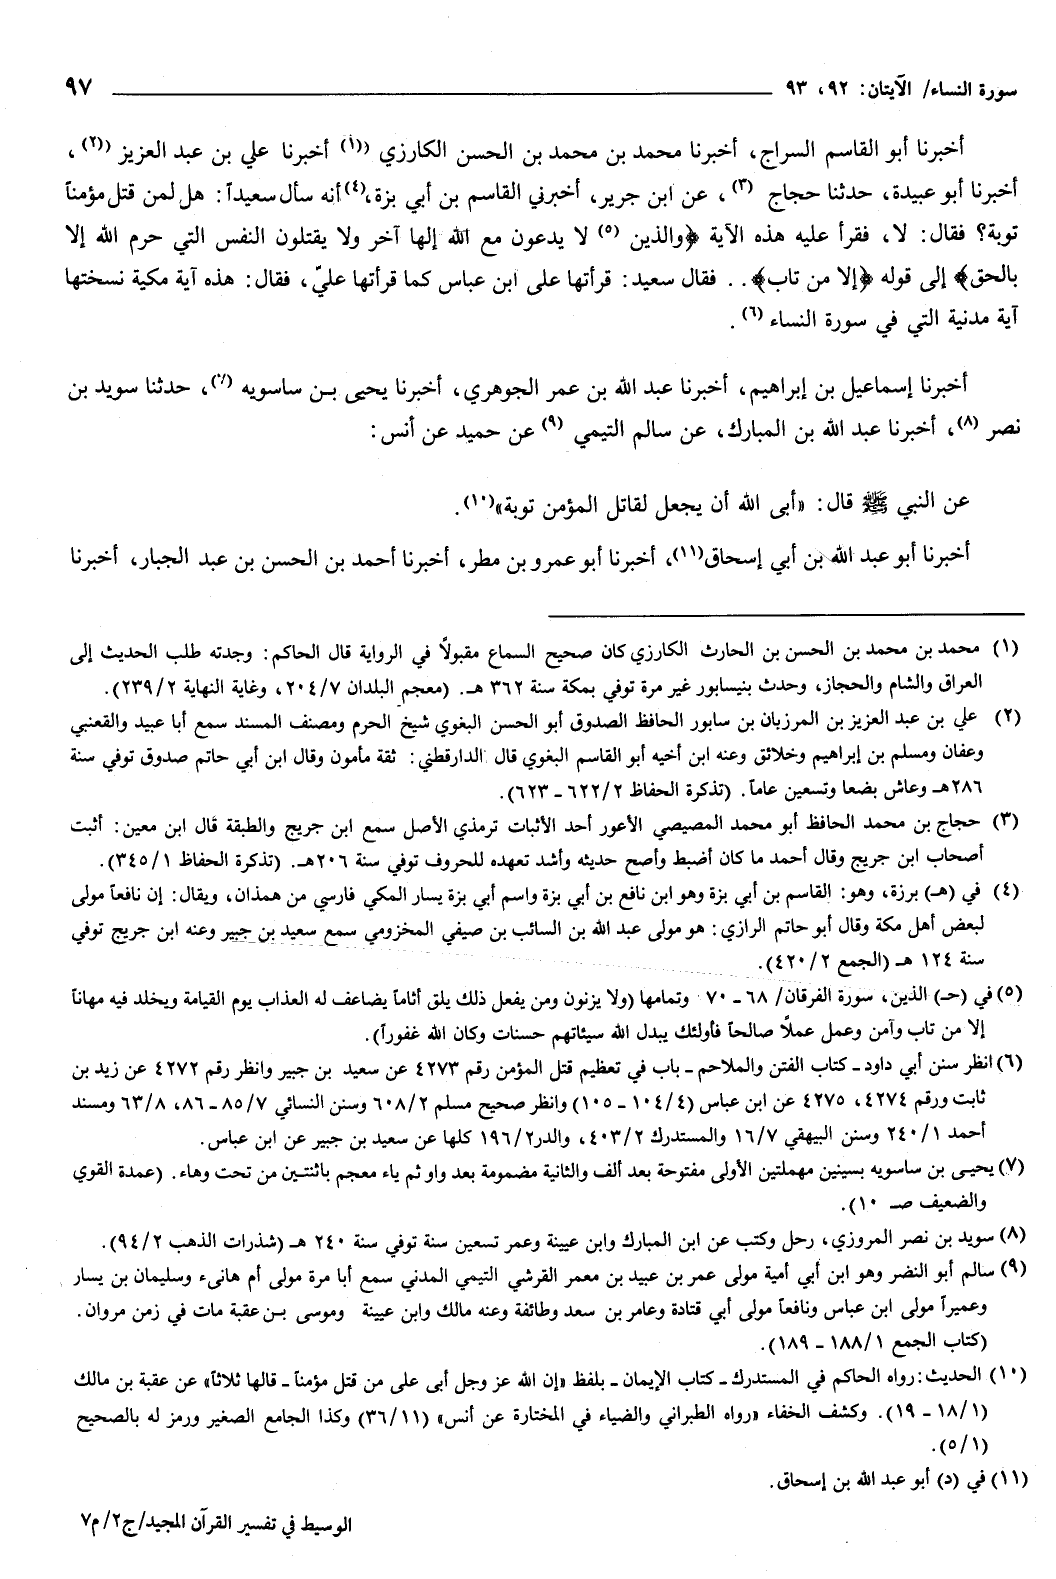 سورة النساء/ الآيتان: ٩٢، ٩٣ ٩٧
أخبرنا أبو القاسم السراج، أخبرنا محمد بن محمد بن الحسن الكارزي (١) أخبرنا علي بن عبد العزيز (٢)،
أخبرنا أبو عبيدة، حدثنا حجاج (٣)، عن ابن جرير، أخبرني القاسم بن أبي بزة،(٤) أنه سأل سعيداً: هل لمن قتل مؤمناً
توبة؟ فقال: لا، فقرأ عليه هذه الآية ﴿والذين (٥) لا يدعون مع الله إلها آخر ولا يقتلون النفس التي حرم الله إلا
بالحق﴾ إلى قوله ﴿إلا من تاب﴾.. فقال سعيد: قرأتها على ابن عباس كما قرأتها عليّ، فقال: هذه آية مكية نسختها
آية مدنية التي في سورة النساء (٦).
أخبرنا إسماعيل بن إبراهيم، أخبرنا عبد الله بن عمر الجوهري، أخبرنا يحيى بـن ساسويه (٧)، حدثنا سويد بن
نصر (٨)، أخبرنا عبد الله بن المبارك، عن سالم التيمي (٩) عن حميد عن أنس:
عن النبي ﷺ قال: «أبى الله أن يجعل لقاتل المؤمن توبة»(١٠).
أخبرنا أبو عبد الله بن أبي إسحاق(١١)، أخبرنا أبو عمرو بن مطر، أخبرنا أحمد بن الحسن بن عبد الجبار، أخبرنا
(١) محمد بن محمد بن الحسن بن الحارث الكارزي كان صحيح السماع مقبولاً في الرواية قال الحاكم: وجدته طلب الحديث إلى
العراق والشام والحجاز، وحدث بنيسابور غير مرة توفي بمكة سنة ٣٦٢ هـ. (معجم البلدان ٢٠٤/٧، وغاية النهاية ٢٣٩/٢).
(٢) علي بن عبد العزيز بن المرزبان بن سابور الحافظ الصدوق أبو الحسن البغوي شيخ الحرم ومصنف المسند سمع أبا عبيد والقعنبي
وعفان ومسلم بن إبراهيم وخلائق وعنه ابن أخيه أبو القاسم البغوي قال الدارقطني: ثقة مأمون وقال ابن أبي حاتم صدوق توفي سنة
٢٨٦هـ وعاش بضعا وتسعين عاماً. (تذكرة الحفاظ ٦٢٢/٢ ـ ٦٢٣).
(٣) حجاج بن محمد الحافظ أبو محمد المصيصي الأعور أحد الأثبات ترمذي الأصل سمع ابن جريج والطبقة قال ابن معين: أثبت
أصحاب ابن جريج وقال أحمد ما كان أضبط وأصح حديثه وأشد تعهده للحروف توفي سنة ٢٠٦هـ. (تذكرة الحفاظ ٣٤٥/١).
(٤) في (هـ) برزة، وهو: القاسم بن أبي بزة وهو ابن نافع بن أبي بزة واسم أبي بزة يسار المكي فارسي من همذان، ويقال: إن نافعاً مولى
لبعض أهل مكة وقال أبو حاتم الرازي: هو مولى عبد الله بن السائب بن صيفي المخزومي سمع سعيد بن جبير وعنه ابن جريج توفي
سنة ١٢٤ هـ (الجمع ٤٢٠/٢).
(٥) في (حـ) الذين، سورة الفرقان/ ٦٨ ـ ٧٠ وتمامها (ولا يزنون ومن يفعل ذلك يلق أثاماً يضاعف له العذاب يوم القيامة ويخلد فيه مهاناً
إلا من تاب وآمن وعمل عملاً صالحاً فأولئك يبدل الله سيئاتهم حسنات وكان الله غفوراً).
(٦) انظر سنن أبي داود ـ كتاب الفتن والملاحم ـ باب في تعظيم قتل المؤمن رقم ٤٢٧٣ عن سعيد بن جبير وانظر رقم ٤٢٧٢ عن زيد بن
ثابت ورقم ٤٢٧٤، ٤٢٧٥ عن ابن عباس (١٠٤/٤ ـ ١٠٥) وانظر صحيح مسلم ٦٠٨/٢ وسنن النسائي ٨٥/٧ ـ ٨٦، ٦٣/٨ ومسند
أحمد ٢٤٠/١ وسنن البيهقي ١٦/٧ والمستدرك ٤٠٣/٢، والدر١٩٦/٢ كلها عن سعيد بن جبير عن ابن عباس.
(٧) يحيـى بن ساسويه بسينين مهملتين الأولى مفتوحة بعد ألف والثانية مضمومة بعد واو ثم ياء معجم باثنتين من تحت وهاء. (عمدة القوي
والضعيف صـ ١٠).
(٨) سويد بن نصر المروزي، رحل وكتب عن ابن المبارك وابن عيينة وعمر تسعين سنة توفي سنة ٢٤٠ هـ (شذرات الذهب ٩٤/٢).
(٩) سالم أبو النضر وهو ابن أبي أمية مولى عمر بن عبيد بن معمر القرشي التيمي المدني سمع أبا مرة مولى أم هانىء وسليمان بن يسار
وعميراً مولى ابن عباس ونافعاً مولى أبي قتادة وعامر بن سعد وطائفة وعنه مالك وابن عيينة وموسى بـن عقبة مات في زمن مروان.
(كتاب الجمع ١٨٨/١ ـ ١٨٩).
(١٠) الحديث: رواه الحاكم في المستدرك ـ كتاب الإيمان ـ بلفظ «إن الله عز وجل أبى على من قتل مؤمناً ـ قالها ثلاثاً» عن عقبة بن مالك
(١٨/١ ـ ١٩). وكشف الخفاء «رواه الطبراني والضياء في المختارة عن أنس» (٣٦/١١) وكذا الجامع الصغير ورمز له بالصحيح
(٥/١).
(١١) في (د) أبو عبد الله بن إسحاق.
الوسيط في تفسير القرآن المجيد/ج٢/م٧